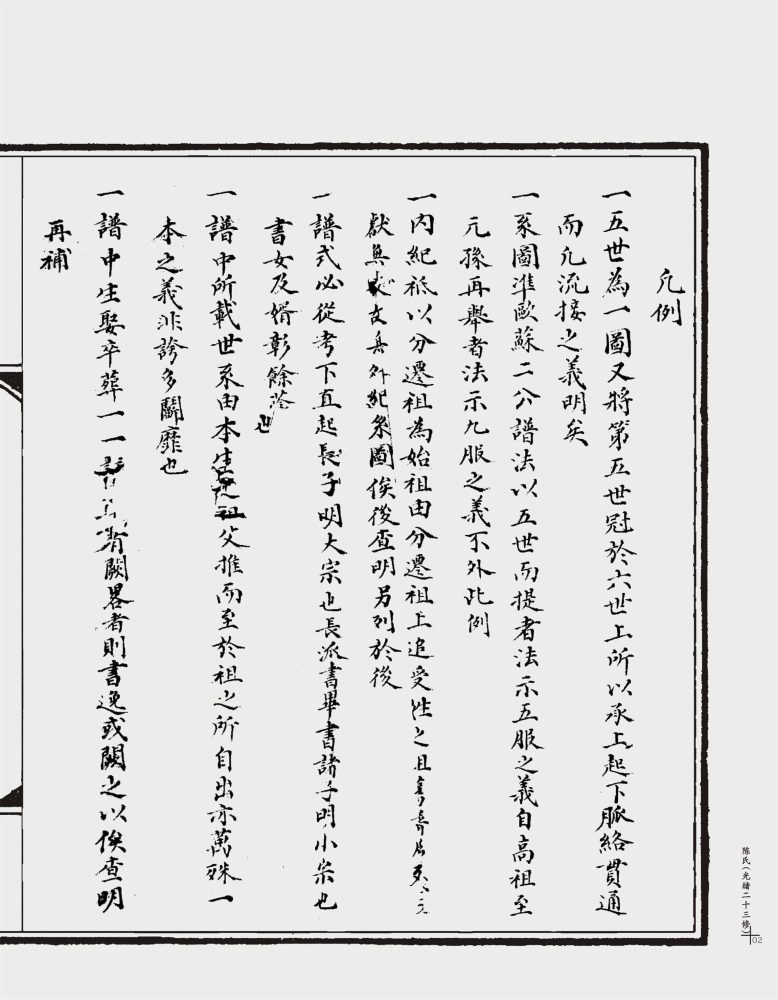 凡例
一五世為一圖又將第五世冠於六世上所以承上起下脈絡貫通
而凡流接之義明矣
一系圖準歐蘇二公譜法以五世而提者法示五服之義自高祖至
元孫再舉者法示九服之義不外此例
一內紀祗以分遷祖為始祖由分遷祖上追受姓之
獻無 故無外紀系圖俟後查明另列於後
一譜式必從考下直起長子明大宗也長派書畢書諸子明小宗也
書女及婿彰餘蔭也
一譜中所載世系由本生 祖父推而至於祖之所自出亦萬殊一
本之義非誇多鬭靡也
一譜中生娶卒葬一一 有闕畧者則書逸或闕之以俟查明
再補
陈氏（光緒二十三修）
02